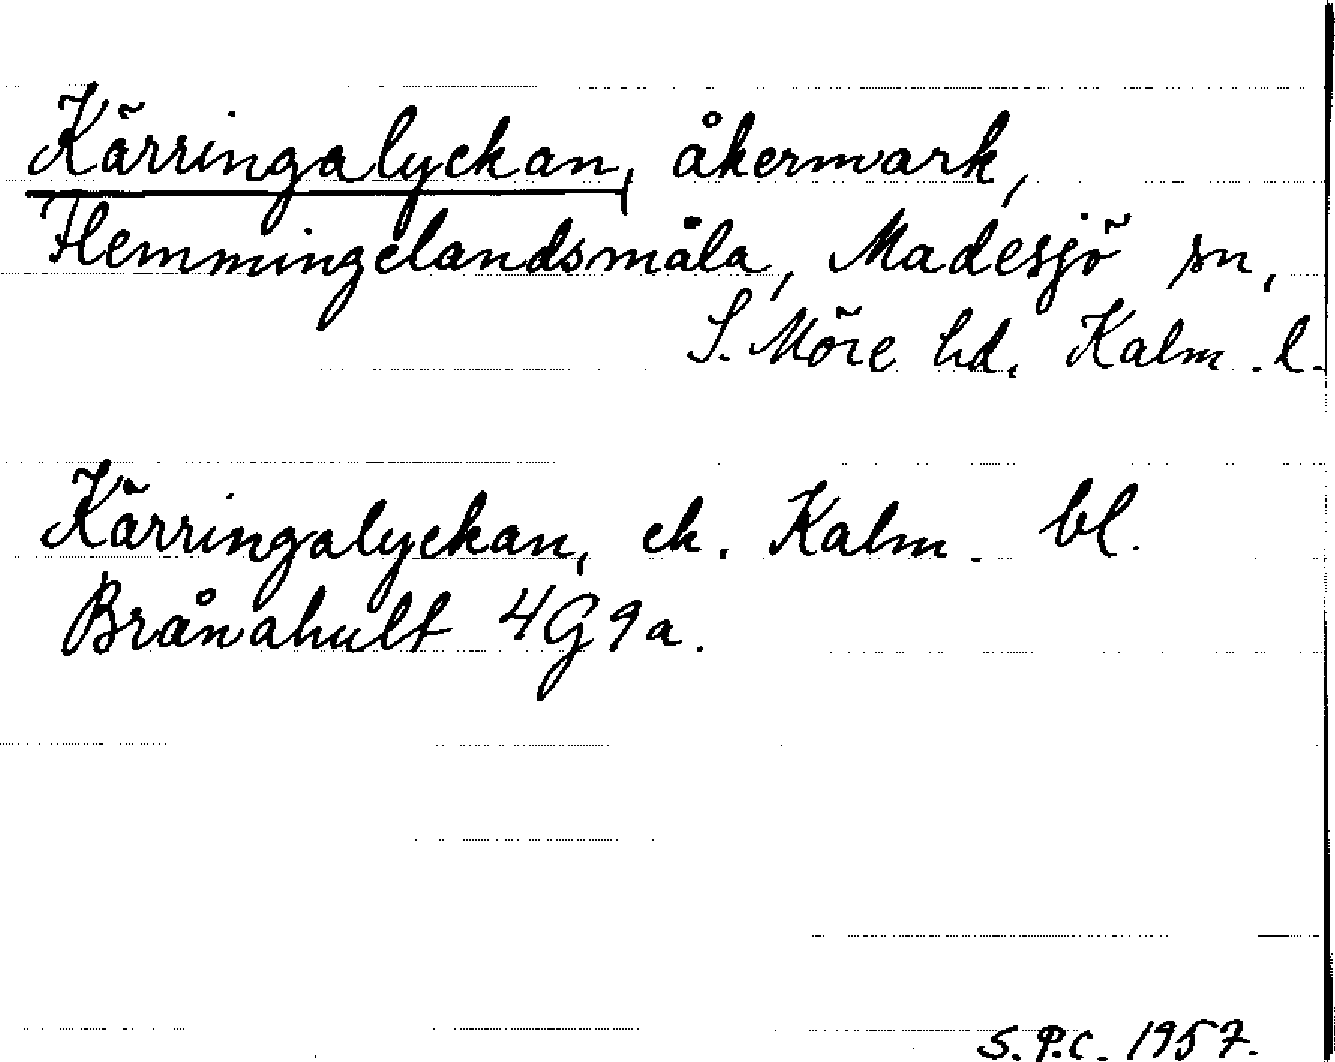 Kärringalyckan, åkermark,
Flemmingelandsmåla, Madesjö sn,
S. Möre hd. Kalm. l.
Kärringalyckan, ek. Kalm. bl.
Brånahult 4G9a.
S.P.C. 1957.